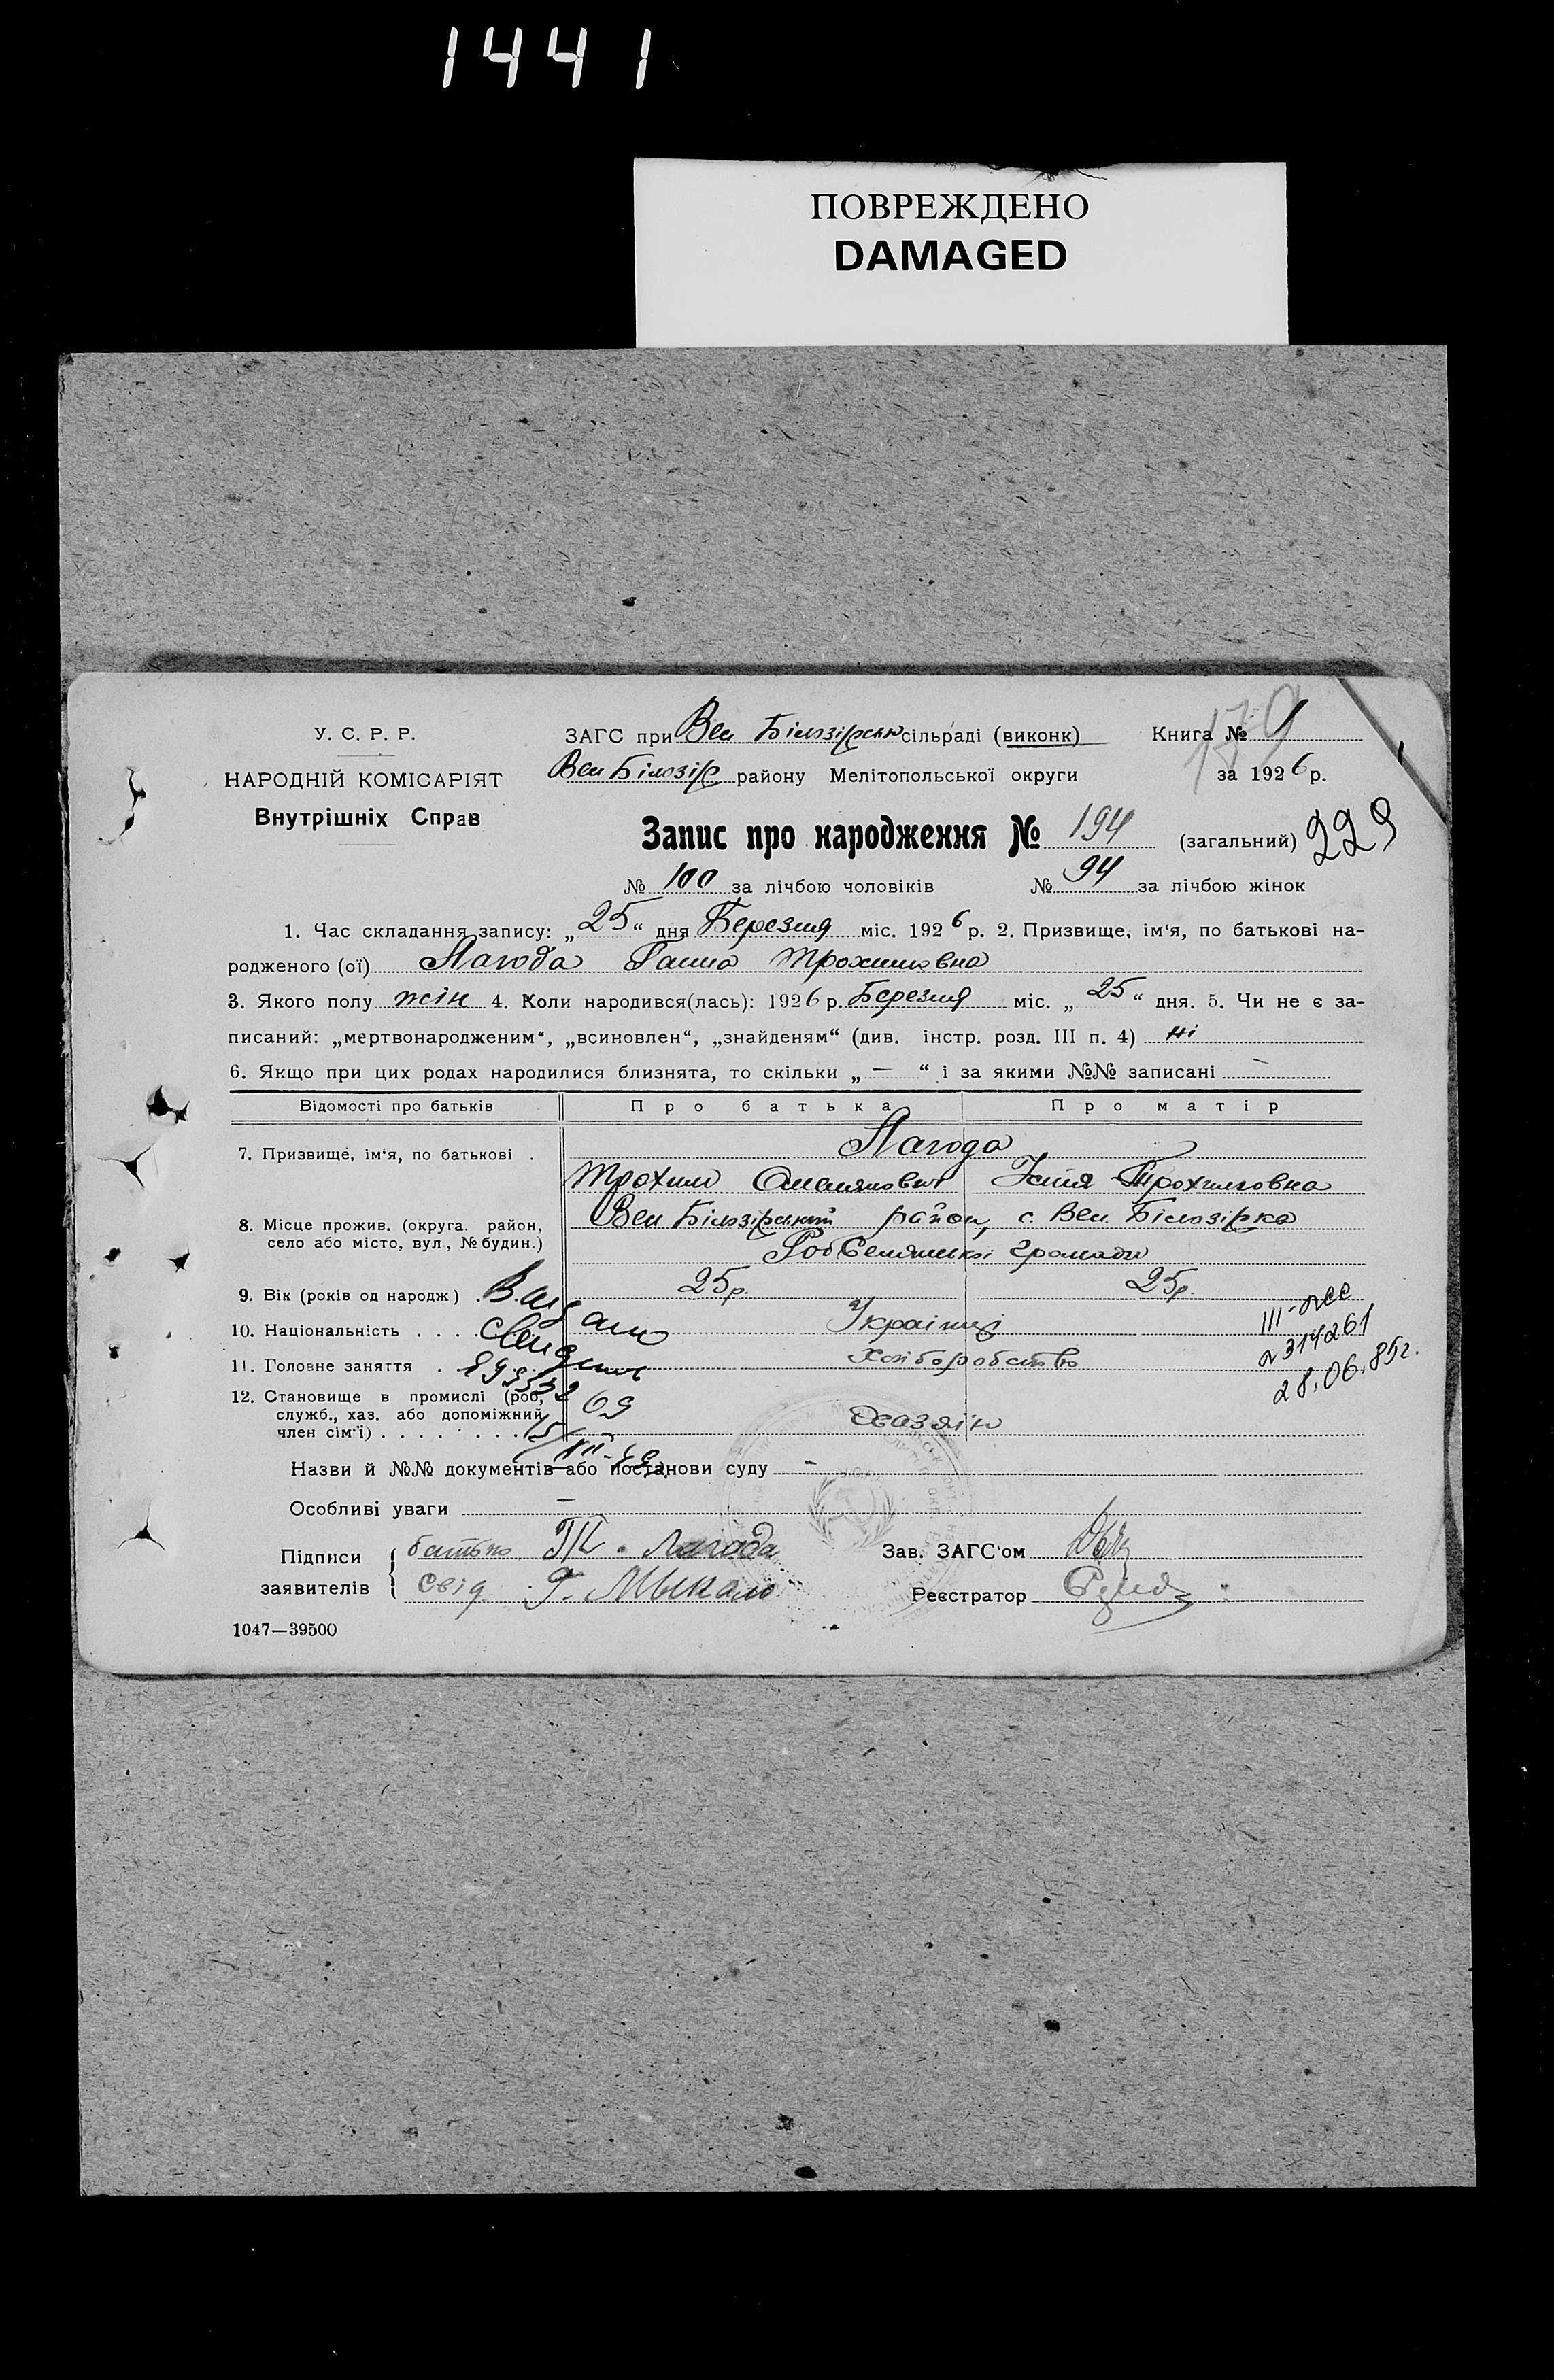 1441
ПОВРЕЖДЕНО
DAMAGED
179
У. С. Р. Р.
ЗАГС при Вел Білозірськ сільраді (виконк)
Книга № 1
НАРОДНІЙ КОМІСАРІЯТ
Вел Білозір району Мелітопольської округи
за 1926 р.
Внутрішніх Справ
Запис про народження № 194 (загальний) 229
№ 100 за лічбою чоловіків № 94 за лічбою жінок
1. Час складання запису: „25“ дня Березня міс. 1926 р. 2. Призвище, ім‘я, по батькові на-
родженого (ої) Лагода Ганна Трохимовна
3. Якого полу жін 4. Коли народився(лась): 1926 р. Березня міс. „25“ дня. 5. Чи не є за-
писаний: „мертвонародженим“, „всиновлен“, „знайденям“ (див. інстр. розд. III п. 4) ні
6. Якщо при цих родах народилися близнята, то скільки „—“ і за якими №№ записані —
Відомості про батьків Про батька Про матір
7. Призвище, ім‘я, по батькові . Лагода
Трохим Омелянович Трохимовна
8. Місце прожив. (округа. район, село або місто, вул., № будин.)
Вел Білозірський район, с. Вел. Білозірка
громади
9. Вік (років од народж) . 25р. 25р.
10. Національність . . . . Українці
11. Головне заняття . Хліборобство
12. Становище в промислі (роб, служб., хаз. або допоміжний член сім‘ї) . . . . . . . . Хазяїн
2314261
28.06.85г.
Назви й №№ документів або постанови суду –
Особливі уваги —
Підписи заявителів
батько Лагода
свід Г.
Зав. ЗАГС‘ом
Реєстратор
1047—39500